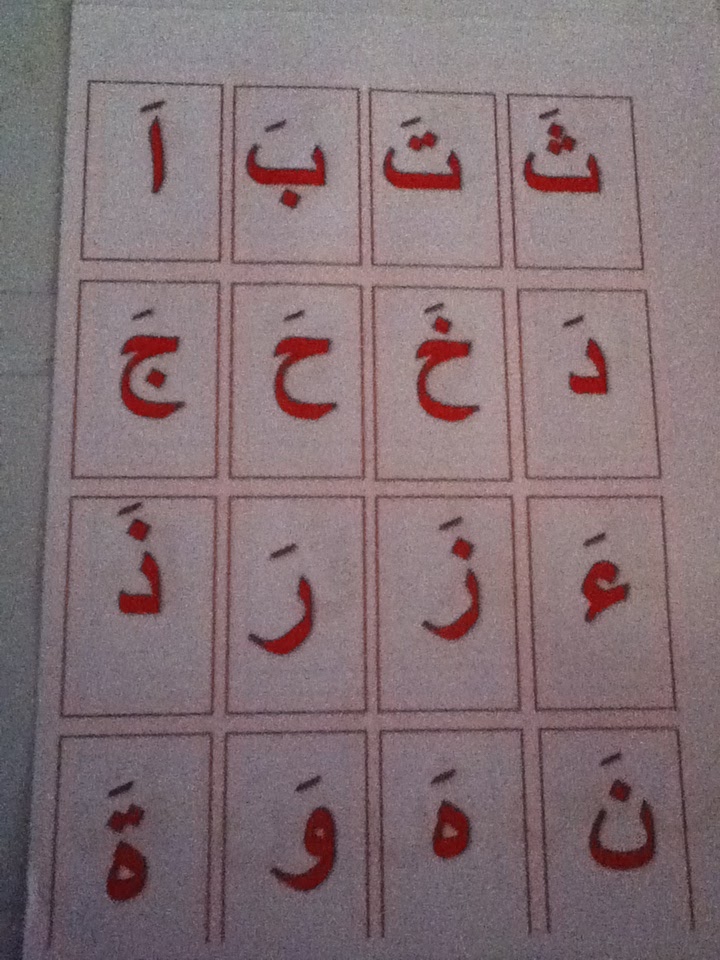 اَ بَ تَ ثَ
جَ حَ خَ دَ
ذَ رَ زَ ءَ
ةَ وَ هَ نَ